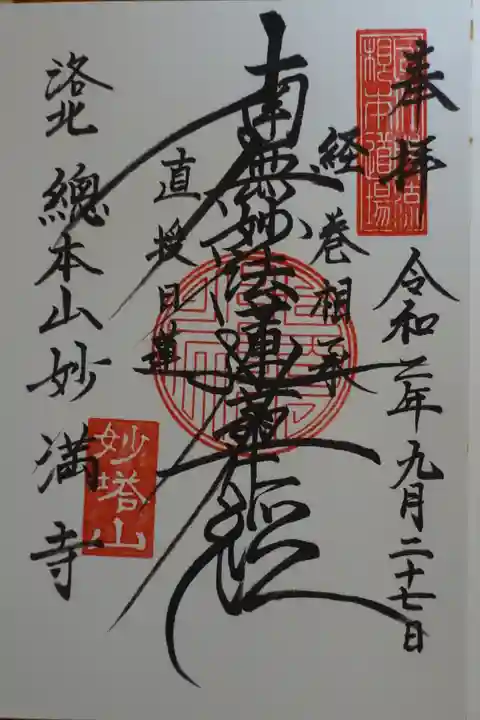 奉拝
令和二年九月二十七日
経巻相承
南無妙法蓮華経
直授日蓮
洛北 總本山妙満寺
妙塔山
根本道場